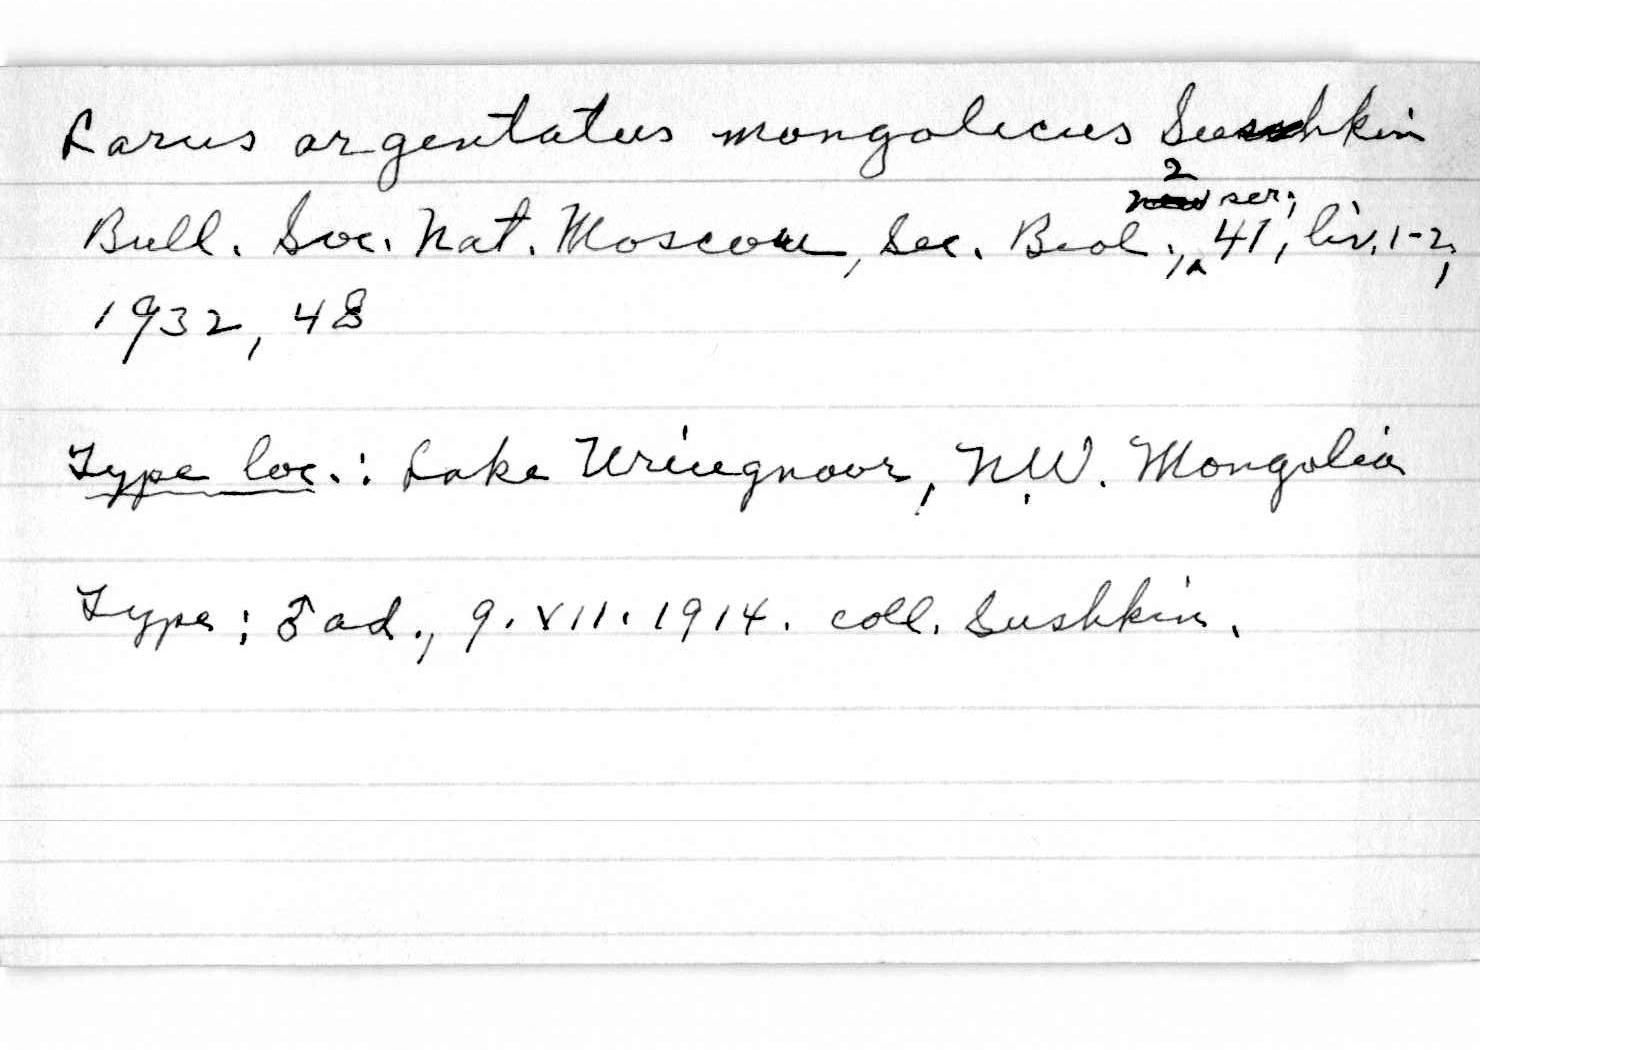 Larus argentatus mongolicus Sushkin
2
ser.,
Bull. Soc. Nat. Moscou, Sec. Biol., 41, liv. 1-2,
1932, 48
Type loc.: Lake Uriugnoor, N.W. Mongolia
Type: ♂ ad., 9.VII.1914. coll. Sushkin.